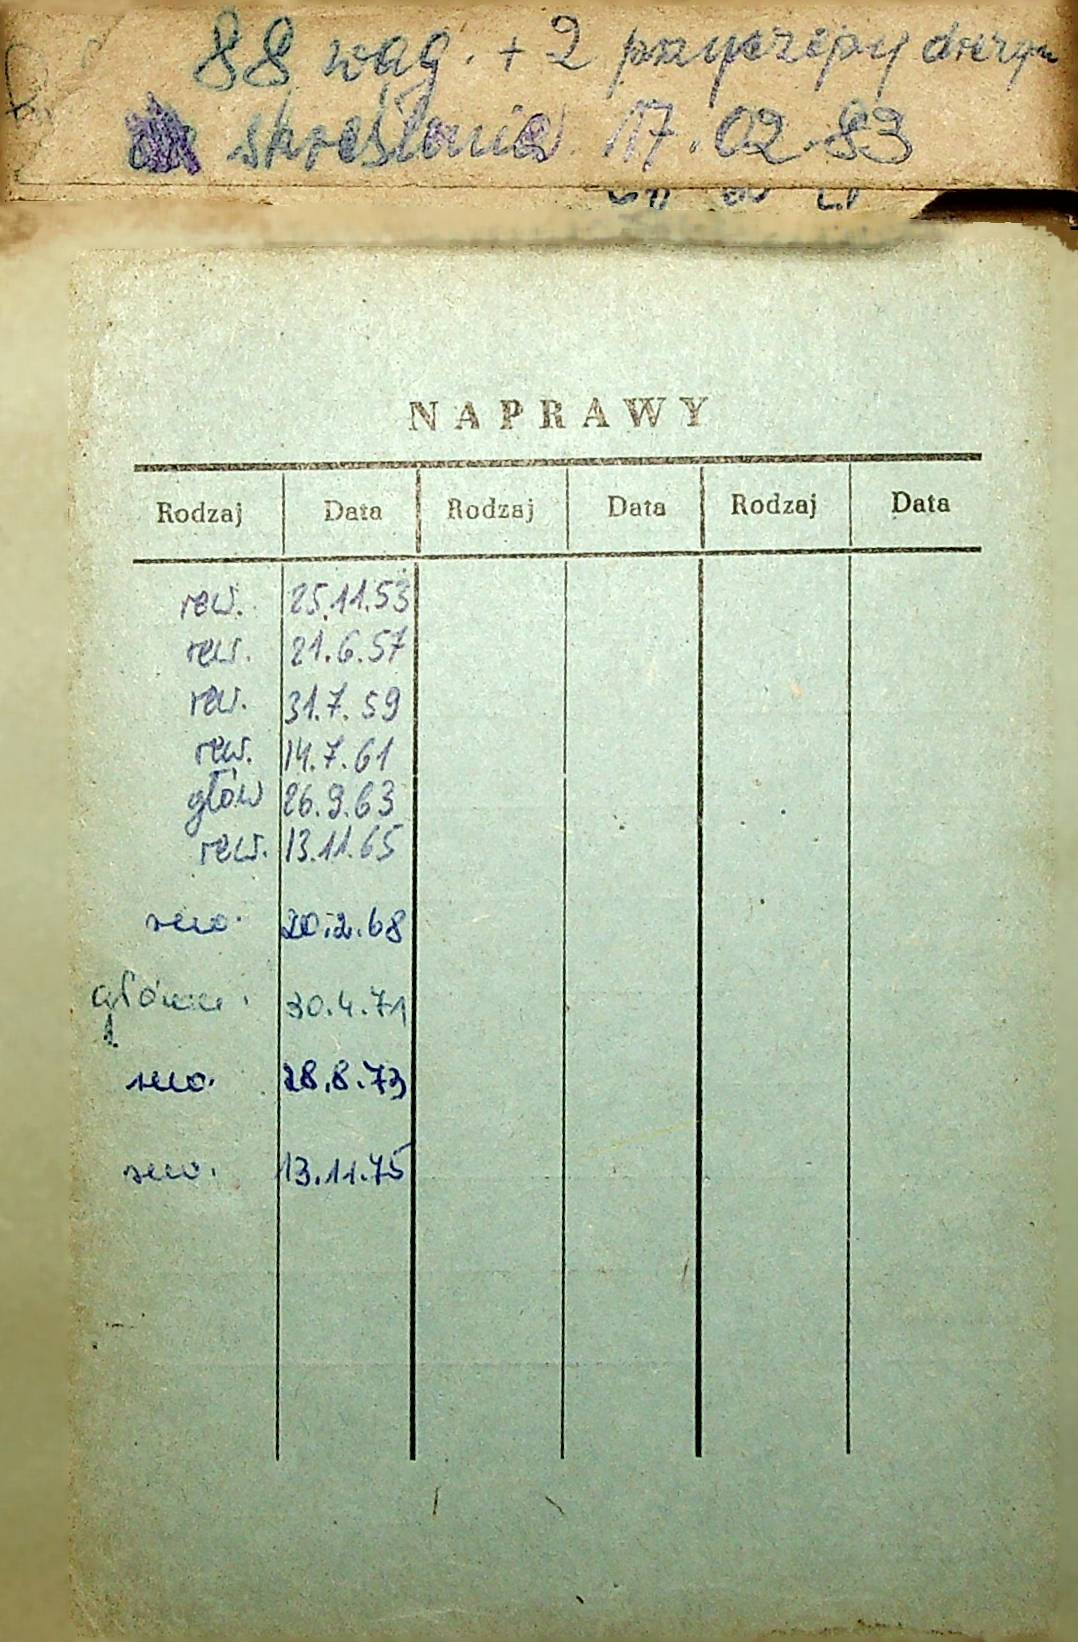 88 wag. + 2 przyczepy drezyn
skreślenie 17.02.83
NAPRAWY
Rodzaj Data Rodzaj Data Rodzaj Data
rew. 25.11.53
rew. 21.6.57
rew. 31.7.59
rew. 14.7.61
głów 26.9.63
rew. 13.11.65
rew. 20.2.68
główn. 30.4.71
rew. 28.8.73
rew. 13.11.75